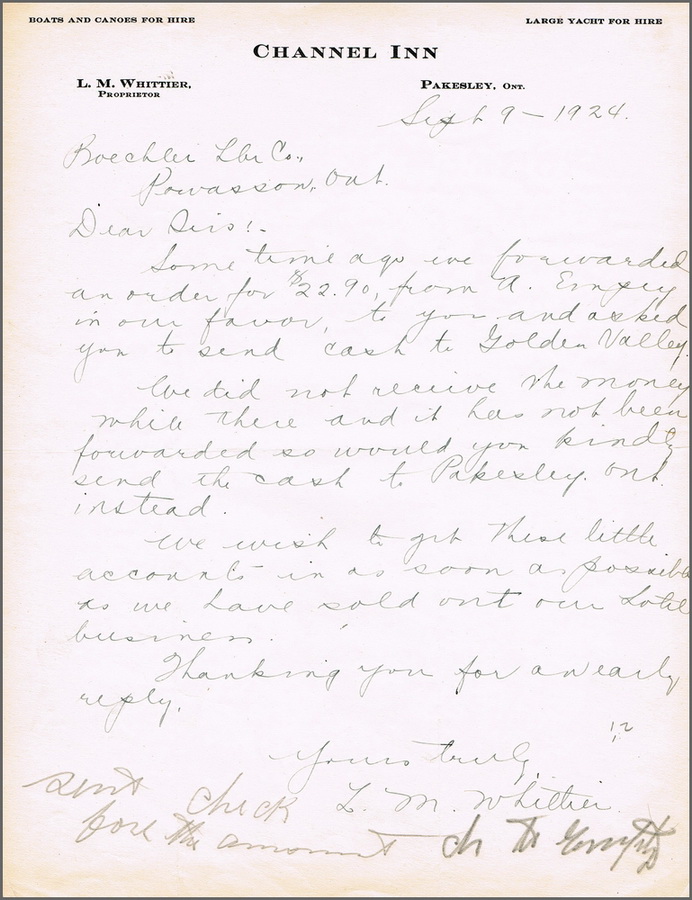 BOATS AND CANOES FOR HIRE LARGE YACHT FOR HIRE
CHANNEL INN
L. M. WHITTIER, PAKESLEY, ONT.
PROPRIETOR
Sept 9 – 1924.
Boechler Lbr Co.,
Powasson, Ont.
Dear Sirs:-
Some time ago we forwarded
an order for $22.90, from A. Empey
in our favor, to you and asked
you to send cash to Golden Valley.
We did not receive the money
while there and it has not been
forwarded so would you kindly
send the cash to Pakesley. Ont.
instead.
We wish to get these little
accounts in as soon as possible
as we have sold out our hotel
business.
Thanking you for an early
reply,
Yours truly,
L. M. Whittier.
sent check
fore the amount ch to